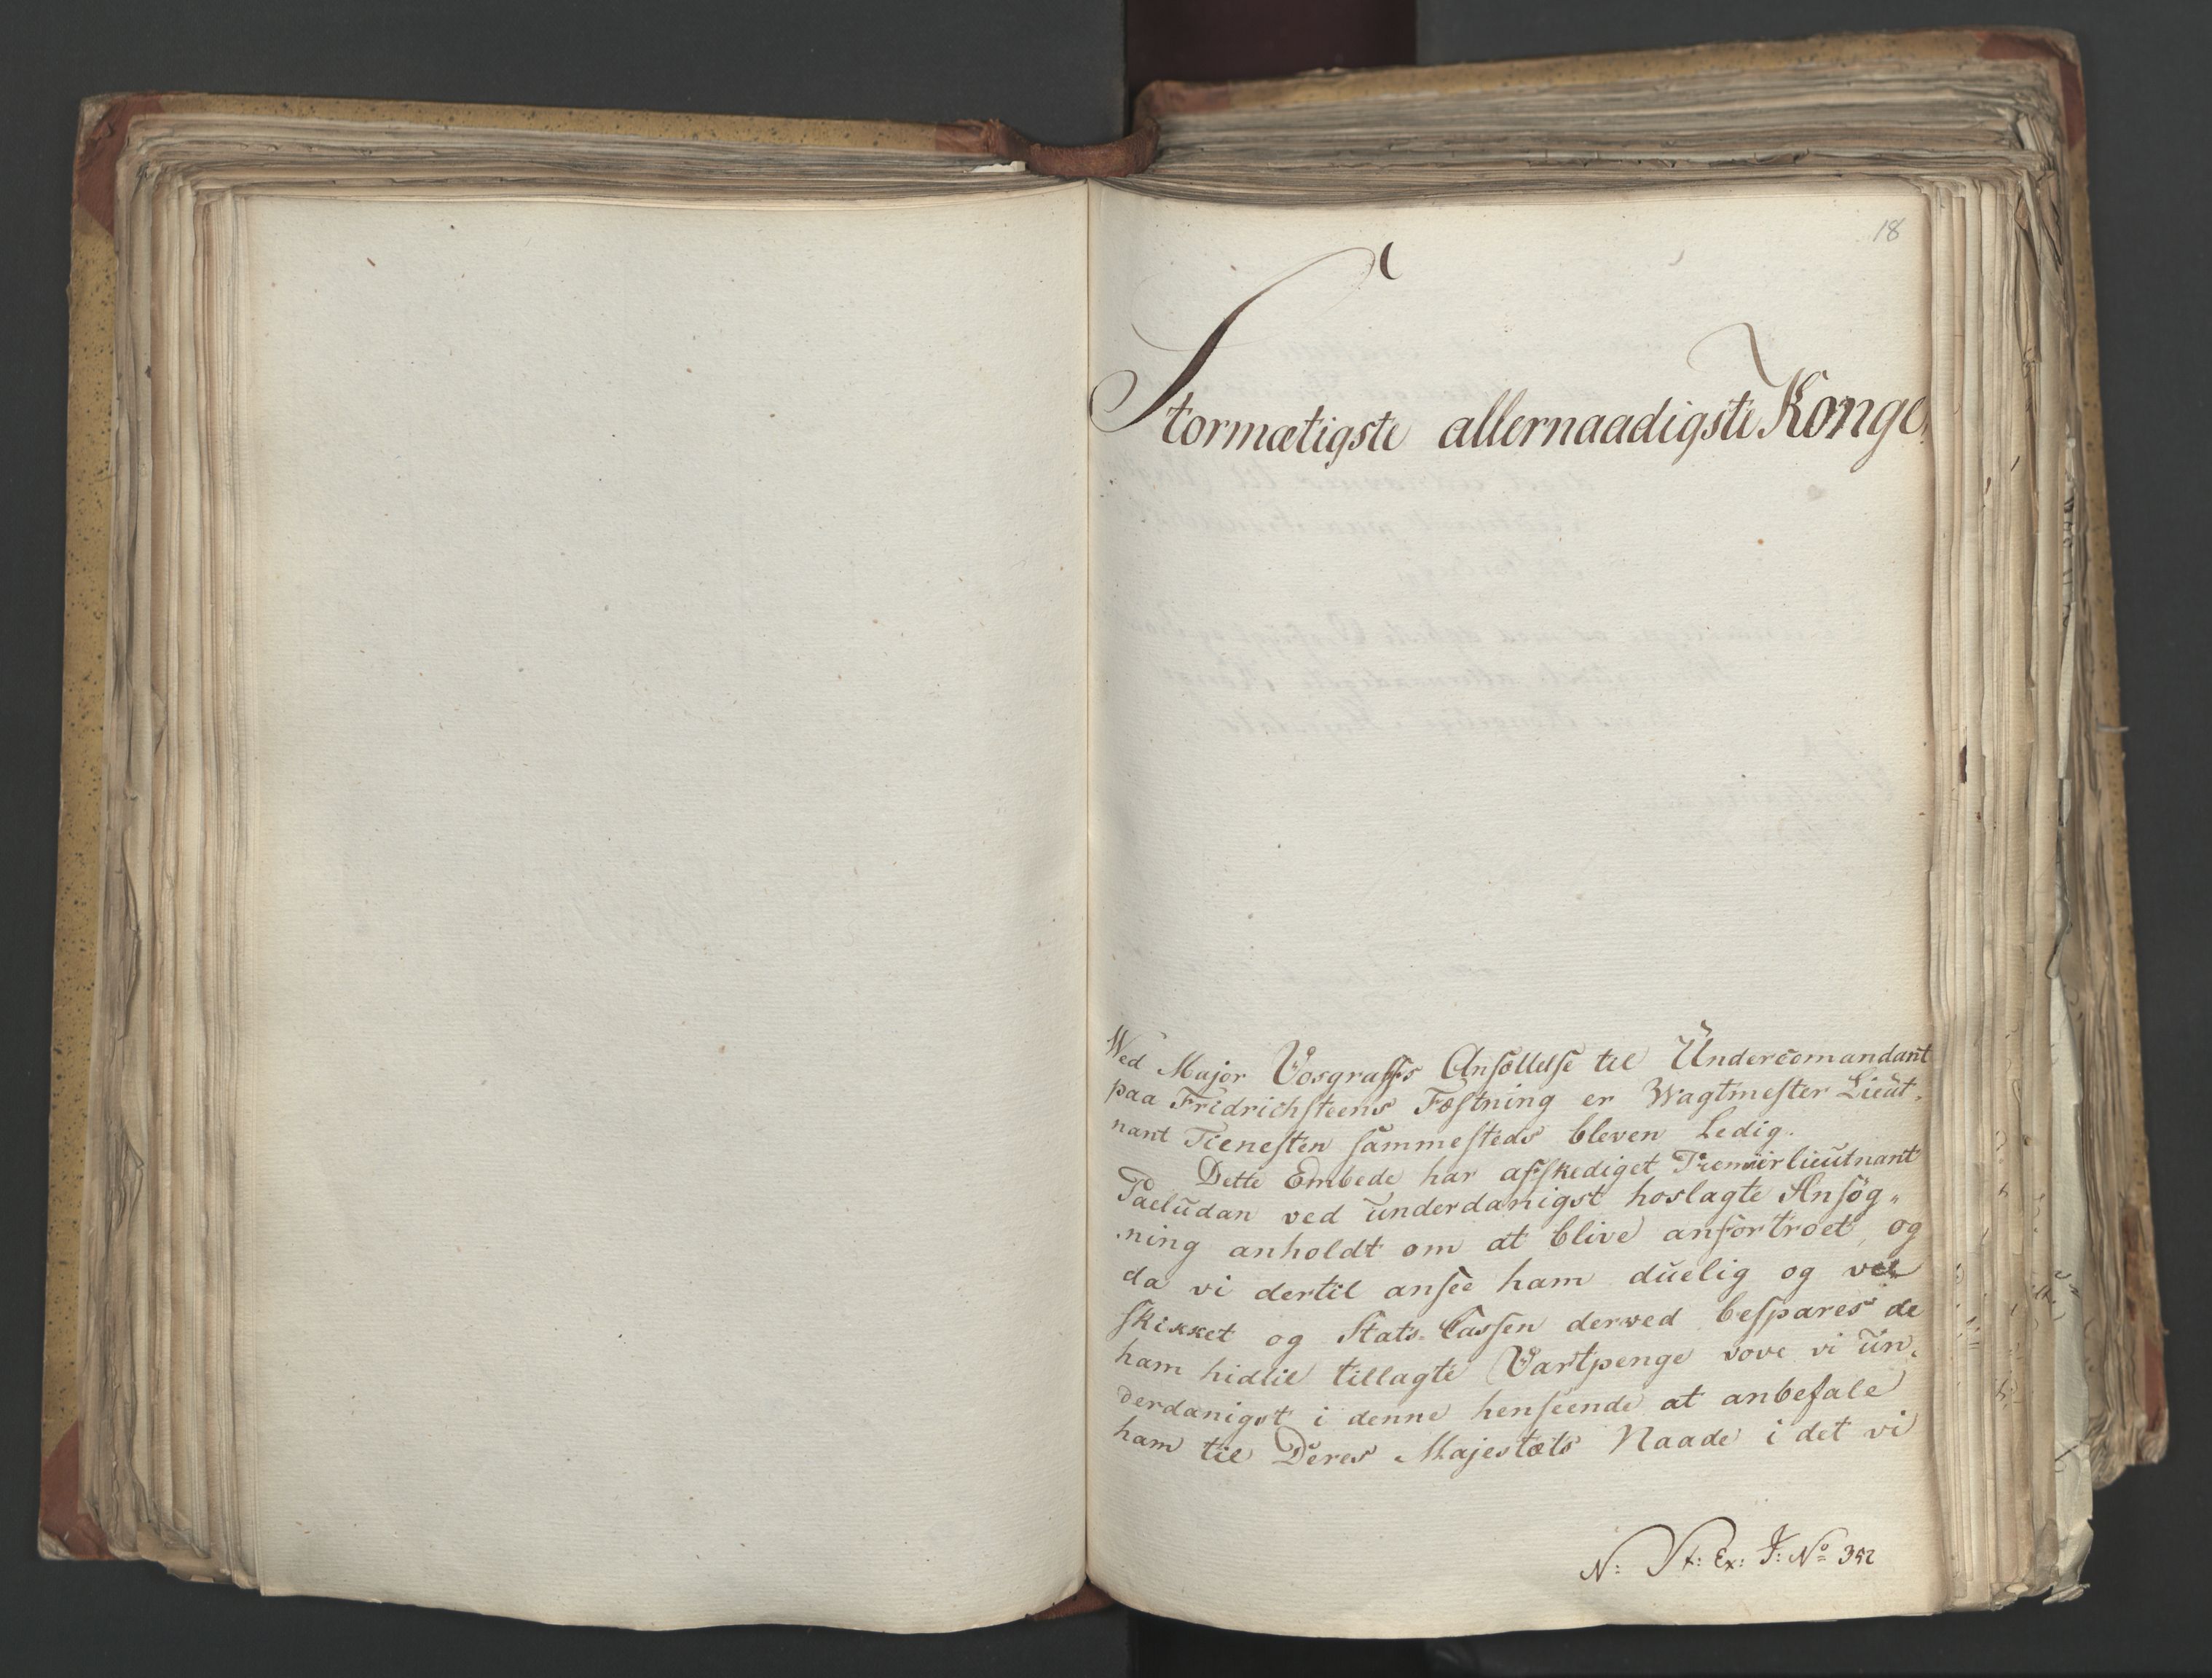 18
Stormætigste allernaadigste Konge!
Wed Major Vosgraffs Ansættelse til Undercomandant
paa Fridrichsteens Fæstning er Wagtmester Lieut„
nant Tienesten sammesteds bleven Ledig.
Dette Embede har afskediget Premierlieutnant
Paeludan ved underdanigst hoslagte Ansøg„
ning anholdt om at blive anfortroet, og
da vi dertil ansee ham duelig og vel
skikket og Stats-Cassen derved bespares de
ham hidtil tillagte Vartpenge vove vi un„
derdanigst i denne henseende at anbefale
ham til Deres Majestæts Naade i det vi
N: St: Ex: J: No 352